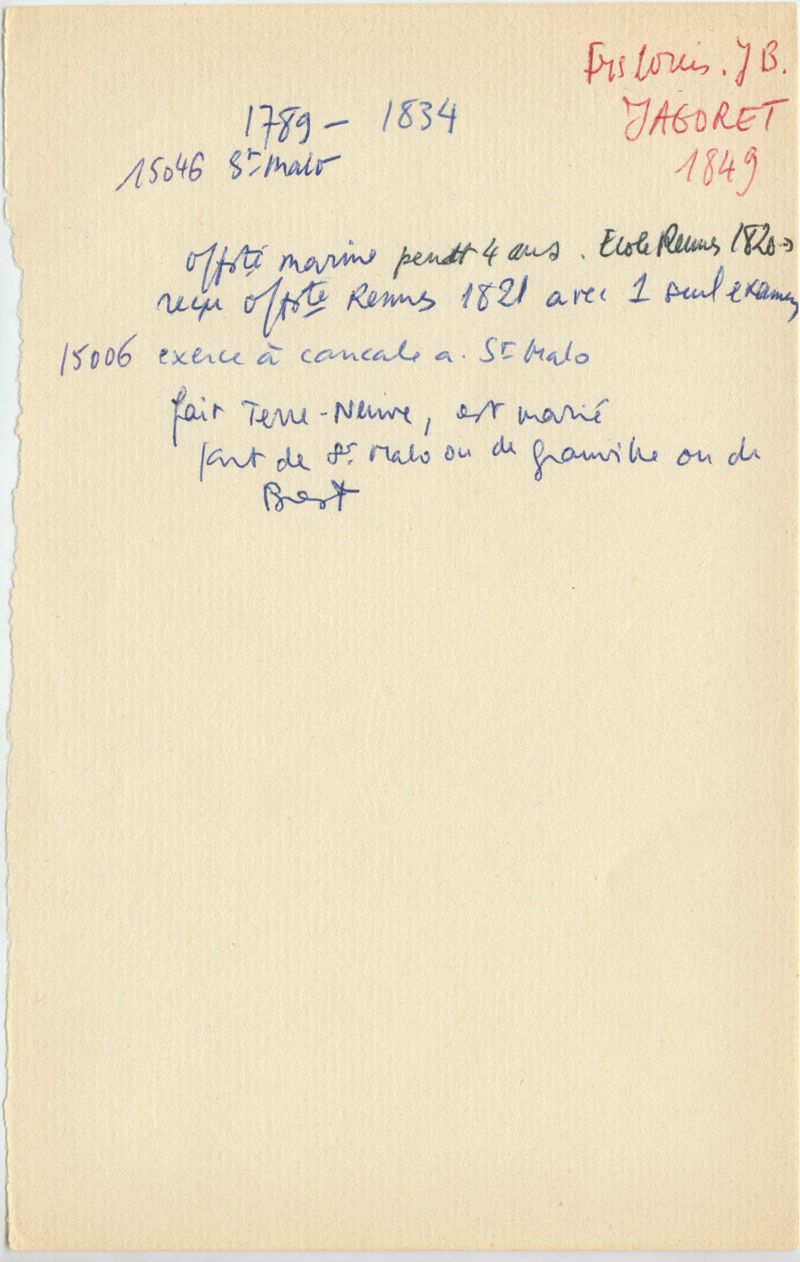 Frs Louis. J B.
JAGORET
1849
1789 - 1834
15046 St Malo
offsté marine pendt 4 ans. Ecole Rennes 1820
reçu offsté Rennes 1821 avec 1 seul examen
15006 exerce à cancale a. St Malo
fait Terre-Neuve, est marié
part de St Malo ou de Granville ou de
Brest